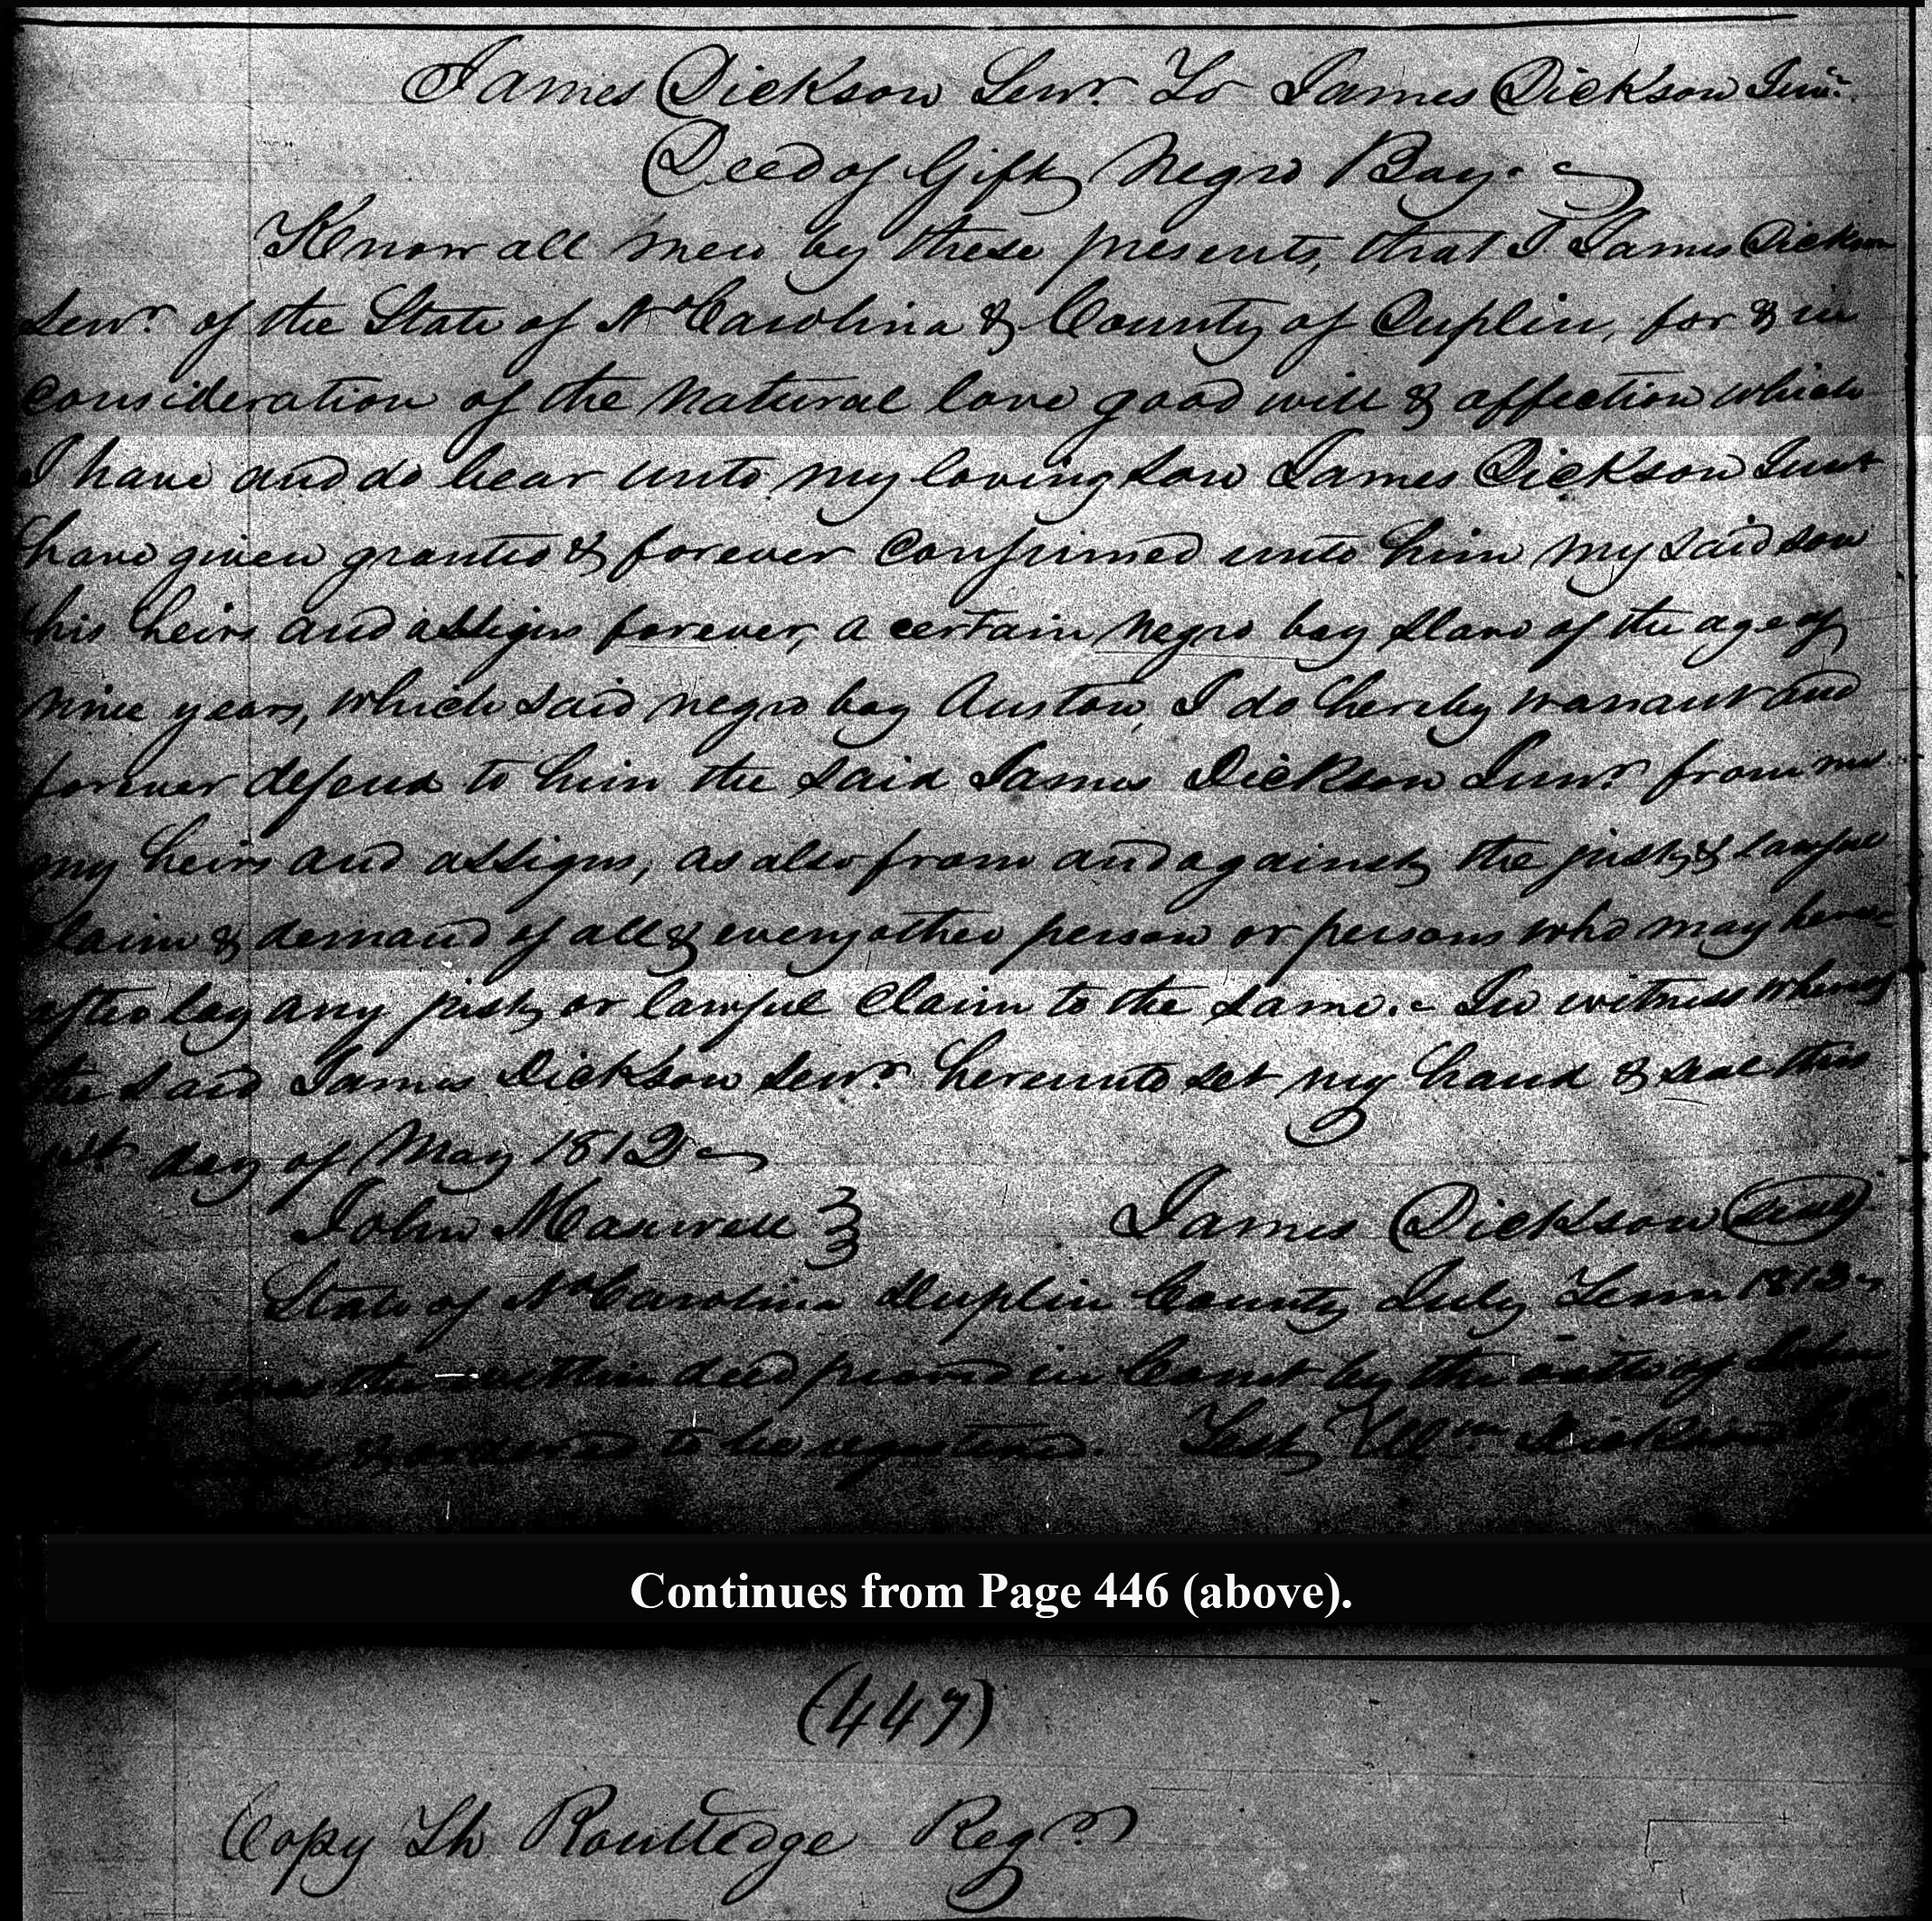 James Dickson Senr. To James Dickson Junr.
Deed of Gift Negro Boy.
Know all men by these presents, that I James Dickson
Senr. of the State of No Carolina & County of Duplin, for & in
consideration of the natural love good will & affection which
I have and do bear unto my loving son James Dickson Junr
have given granted & forever confirmed unto him my said son
his heirs and assigns forever, a certain negro boy slave of the age of
nine years, which said negro boy Auston, I do hereby warrant and
forever defend to him the said James Dickson Junr. from me
my heirs and assigns, as also from and against the just & lawful
claim & demand of all & every other person or persons who may here-
after lay any just or lawful claim to the same. - In witness whereof
the said James Dickson Senr. hereunto set my hand & seal this
1st day of May 1813
John Maxwell James Dickson seal
State of No Carolina Duplin County July Term 1813
was the within deed proved in Court by the oath of John
& ordered to be registered. Test, Wm Dickson
Continues from Page 446 (above).
(447)
Copy Th Routledge Regr.